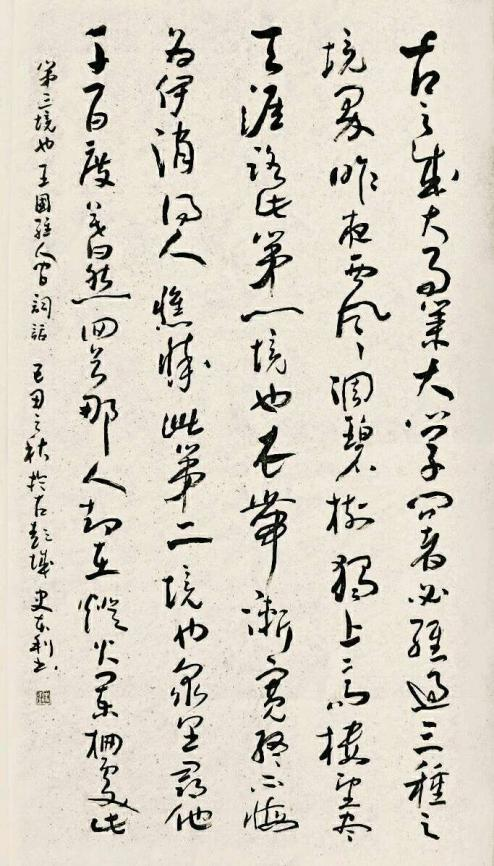 古之成大事業大學問者必經過三種之
境界昨夜西風凋碧樹獨上高樓望盡
天涯路此第一境也衣帶漸寬終不悔
為伊消得人憔悴此第二境也眾里尋他
千百度驀然回首那人却在燈火闌珊處此
第三境也王國維人間詞話 己丑之秋於古彭城 史东利书